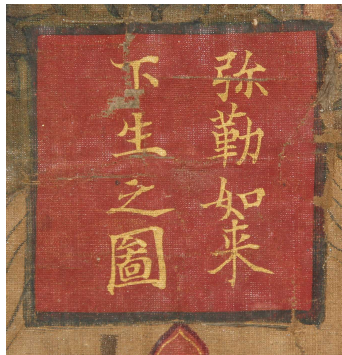 弥勤如来
下生之圖